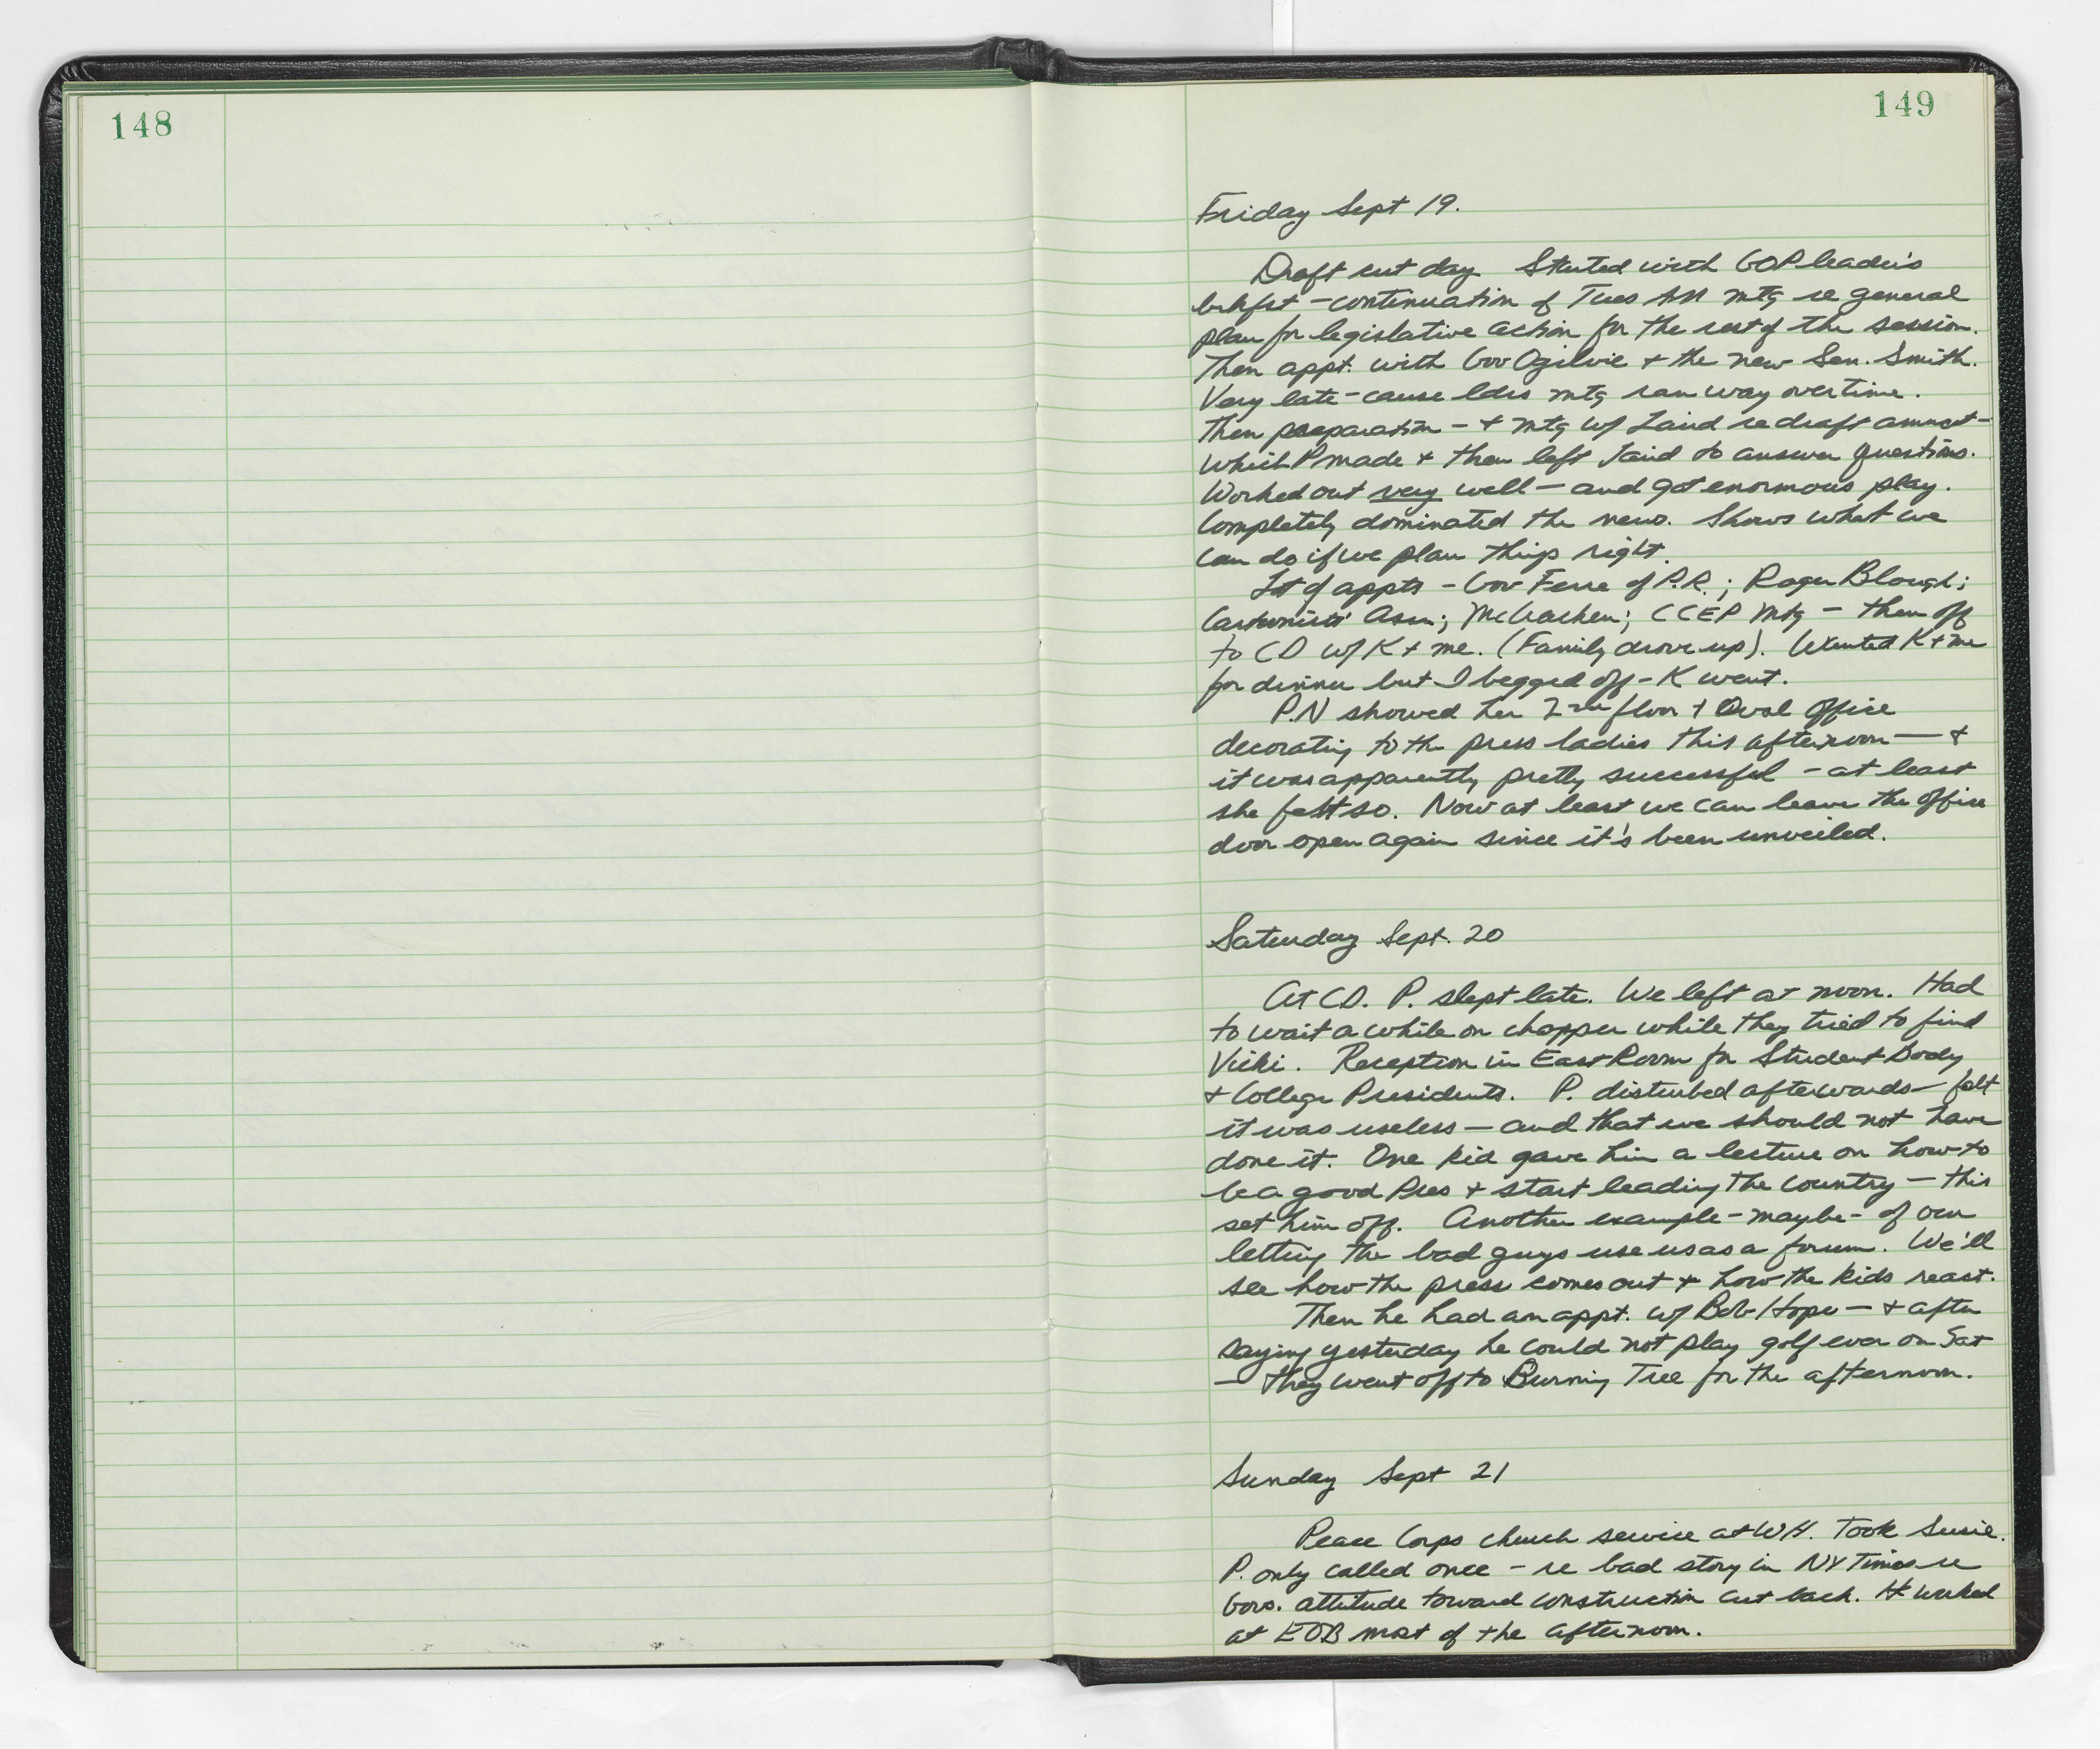 148
149
Friday Sept 19.
Draft cut day. Started with GOP leaders
brkfst - continuation of Tues AM mtg re general
plan for legislative action for the rest of the session.
Then appt. with Gov Ogilvie + the new Sen. Smith.
Very late - cause ldrs mtg ran way overtime.
Then preparation - + mtg w/ Laird re draft anncmt -
which P made + then left Laird to answer questions.
Worked out very well - and got enormous play.
Completely dominated the news. Shows what we
can do if we plan things right.
Lot of appts - Gov Ferre of P.R.; Roger Blough;
Cartoonists' Assn; McCracken; CCEP Mtg - then off
to CD w/ K + me. (Family drove up). Wanted K + me
for dinner but I begged off - K went.
P.N showed her 2nd floor + Oval Office
decorating to the press ladies this afternoon - +
it was apparently pretty successful - at least
she felt so. Now at least we can leave the office
door open again since it's been unveiled.
Saturday Sept. 20
At CD. P. slept late. We left at noon. Had
to wait a while on chopper while they tried to find
Vicki. Reception in East Room for Student Body
+ College Presidents. P. disturbed afterwards - felt
it was useless - and that we should not have
done it. One kid gave him a lecture on how to
be a good Pres + start leading the country - this
set him off. Another example - maybe - of our
letting the bad guys use us as a forum. We'll
see how the press comes out + how the kids react.
Then he had an appt. w/ Bob Hope - + after
saying yesterday he could not play golf ever on Sat
- they went off to Burning Tree for the afternoon.
Sunday Sept 21
Peace Corps church service at WH. Took Susie.
P. only called once - re bad story in NY Times re
Govs. attitude toward construction cut back. He worked
at EOB most of the afternoon.